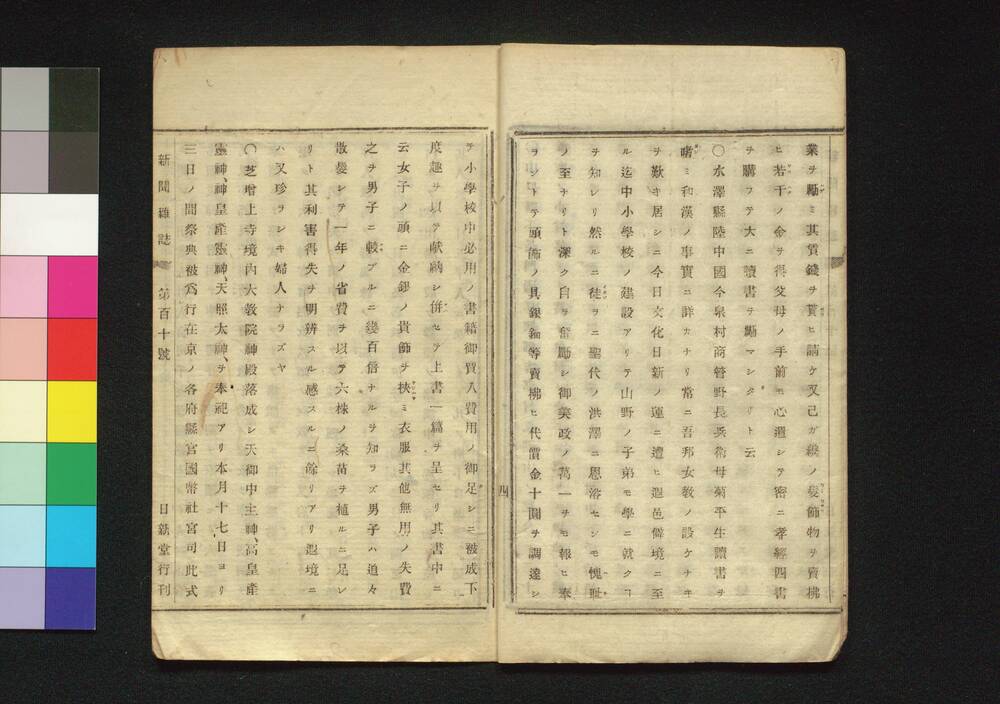 業ヲ勵ミ其賃錢ヲ貰ヒ請ケ又己ガ幾ノ髮飾物ヲ賣拂
ヒ若干ノ金ヲ得父母ノ手前モ心遣シテ密ニ孝經四書
ヲ購フテ大ニ讀書ヲ勵マシタリト云
〇水澤縣陸中國今泉村商菅野長兵衛母菊平生讀書ヲ
嗜ミ和漢ノ事實ニ詳カナリ常ニ吾邦女教ノ設ケナキ
ヲ歎キ居シニ今日文化日新ノ運ニ遭ヒ遐邑僻境ニ至
ル迄中小學校ノ建設アリテ山野ノ子弟モ學ニ就クヿ
ヲ知レリ然ルニ徒ヲニ聖代ノ洪澤ニ恩浴センモ愧耻
ノ至ナリト深ク自ヲ奮勵シ御美政ノ萬一ヲモ報ヒ奉
ヲントテ頭飾ノ具銀釵等賣拂ヒ代價金十圓ヲ調達シ
四
ヲ小學校中必用ノ書籍御買入費用ノ御足シニ被成下
度趣ヲ以テ献納シ併セテ上書一篇ヲ呈セリ其書中ニ
云女子ノ頭ニ金銀ノ貴飾ヲ挾ミ衣服其他無用ノ失費
之ヲ男子ニ較ブルニ幾百倍ナルヲ知ラズ男子ハ追々
散髮シテ一年ノ省費ヲ以テ六株ノ桑苗ヲ植ルニ足レ
リト其利害得失ヲ明辨スル感スルニ餘リアリ遐境ニ
ハ又珍ヲシキ婦人ナラズヤ
〇芝增上寺境內大敎院神殿落成シ天御中主神、高皇產
靈神、神皇產靈神、天照太神、ヲ奉祀アリ本月十七日ヨリ
三日ノ間祭典被爲行在京ノ各府縣官國幣社宮司此式
新聞雜誌 第百十號 日新堂行刊